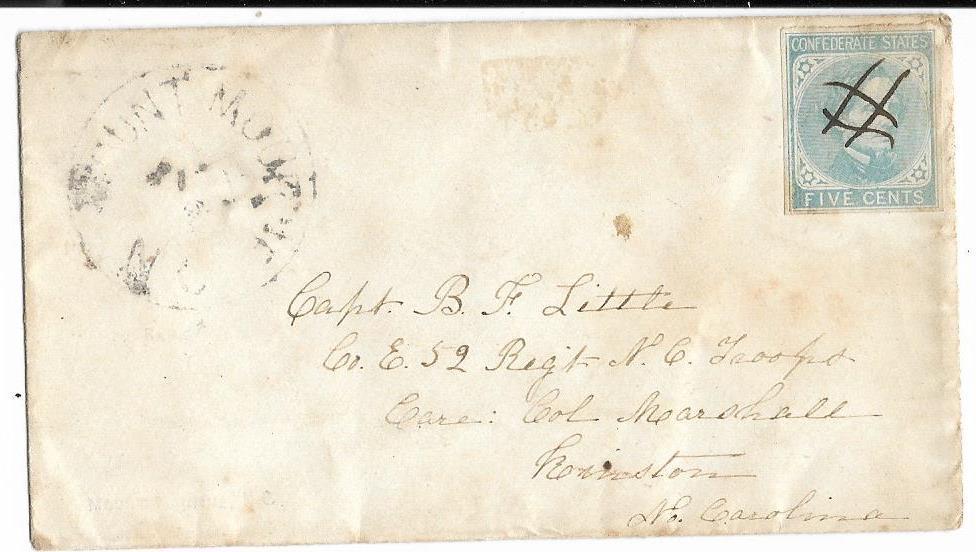 MOUNT MOURNE
N C
CONFEDERATE STATES
FIVE CENTS
Capt. B. F. Little
Co. E. 52 Regt N. C. Troops
Care: Col Marshall
Kinston
No. Carolina